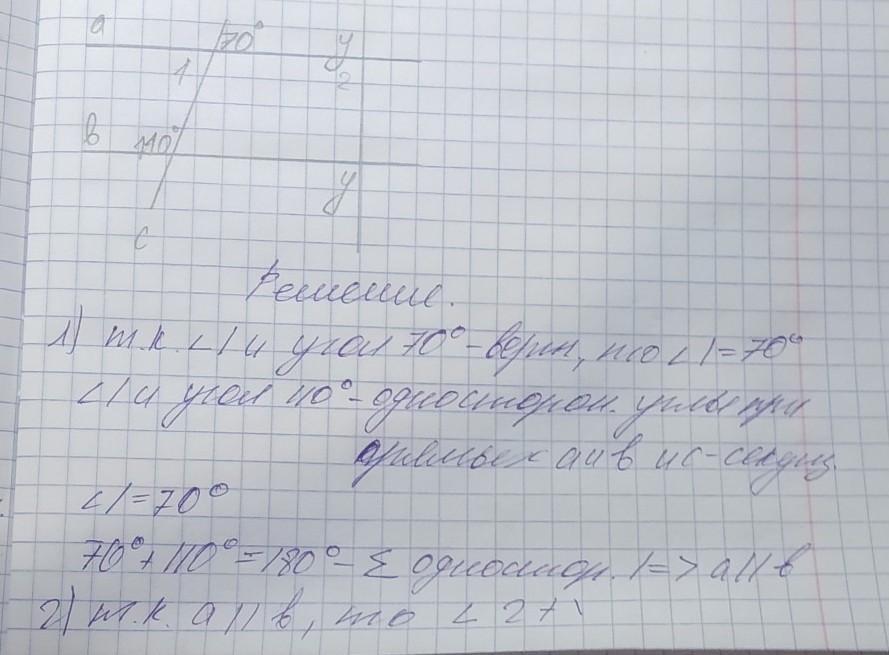 а 70° у
1 2
в 110°
у
с
Решение.
1) т.к. ∠1 и угол 70° - верт, то ∠1 = 70°
∠1 и угол 110° - односторон. углы при
прямых а и в и с - секущ.
∠1 = 70°
70° + 110° = 180° - Σ одностор. | => a || в
2) т.к. a || в, то ∠ 2 +